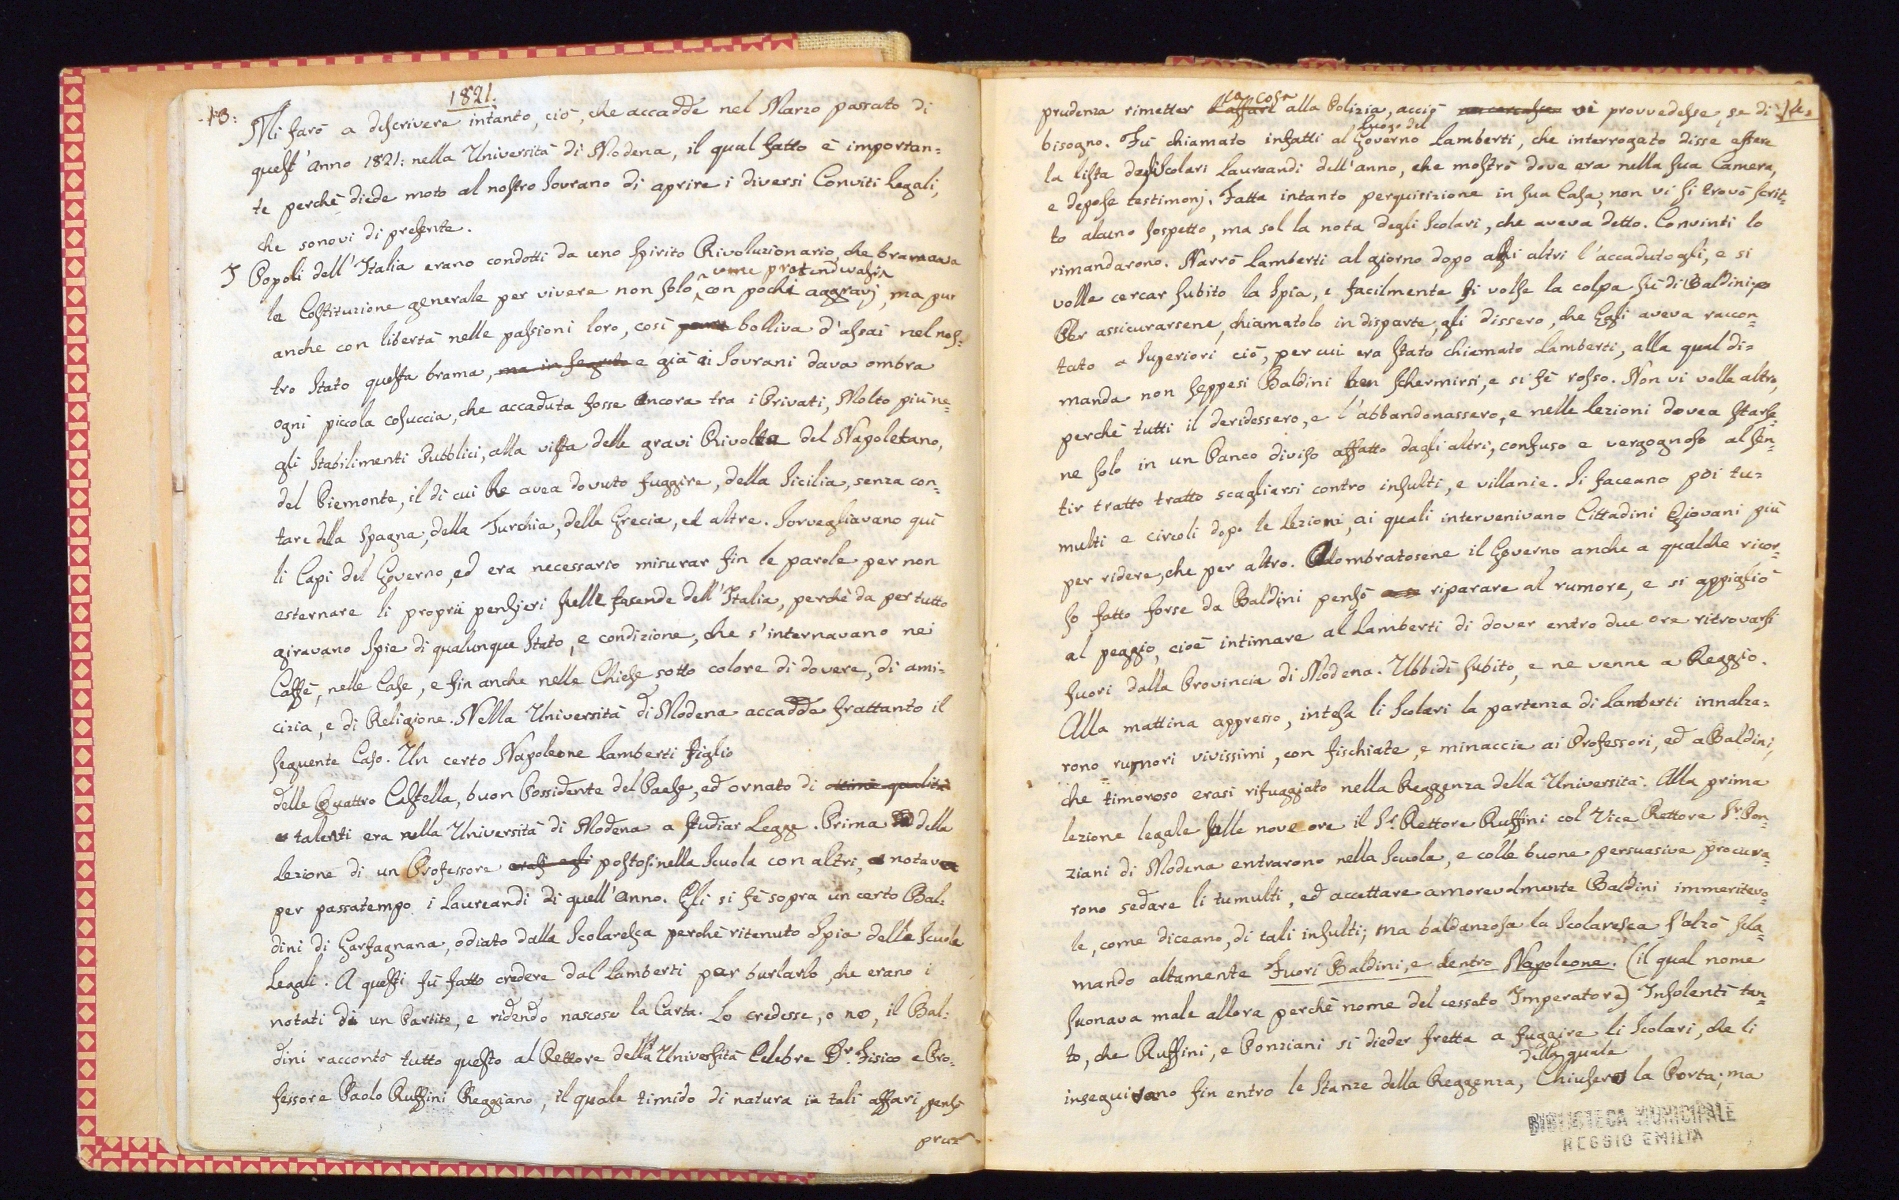 13:
1821.
Mi farò a descrivere intanto, ciò, che accadde nel Marzo passato di
quest'anno 1821: nella Università di Modena, il qual fatto è importan=
te perchè diede moto al nostro Sovrano di aprire i diversi Conviti legali,
che sonovi di presente.
I Popoli dell'Italia erano condotti da uno spirito Rivoluzionario, che bramava
come pretendevasi
la Costituzione generale per vivere non solo, con pochi aggravj, ma pur
anche con libertà nelle passioni loro, così bolliva d'assai nel nos=
tro Stato questa brama, ma in seguito e già ai Sovrani dava ombra
ogni piccola cosuccia, che accaduta fosse ancora tra i Privati, Molto più ne=
gli Stabilimenti Pubblici, alla vista delle gravi Rivolte del Napoletano,
del Piemonte, il di cui Re avea dovuto fuggire, della Sicilia, senza con=
tare della Spagna, della Turchia, della Grecia, ed altre. Sorvegliavano quì
li Capi del Governo, ed era necessario misurar fin le parole per non
esternare li proprii pensieri sulle facende dell'Italia, perchè da per tutto
giravano Spie di qualunque Stato, e condizione, che s'internavano nei
Caffè, nelle Case, e fin anche nelle Chiese sotto colore di dovere, di ami=
cizia, e di Religione. Nella Università di Modena accadde frattanto il
seguente Caso. Un certo Napoleone Lamberti figlio
delle Quattro Castella, buon Possidente del Paese, ed ornato di ottime qualità
e talenti era nella Università di Modena a studiar Legge. Prima della
Lezione di un Professore erasi egli postosi nella Scuola con altri, e notava
per passatempo i Laureandi di quell'Anno. Egli si fè sopra un certo Bal=
dini di Garfagnana, odiato dalla Scolaresca perchè ritenuto Spia delle Scuole
Legali. A questi fù fatto credere dal Lamberti per burlarlo, che erano i
notati di un Partito, e ridendo nascose la Carta. Lo credesse, o no, il Bal=
dini raccontò tutto questo al Rettore della Università Celebre Dr. Fisico e Pro=
fessore Paolo Ruffini Reggiano, il quale timido di natura in tali affari pensò
pruz
14:
la cosa
prudenza rimetter l'affare alla Polizia, acciò vi provvedesse, se di
Luogo del
bisogno. Fù chiamato infatti al Governo Lamberti, che interrogato disse essere
la lista degli Scolari Laureandi dell'anno, che mostrò dove era nella sua Camera,
e depose testimonj. Fatta intanto perquisizione in sua Casa, non vi si trovò scrit=
to alcuno sospetto, ma sol la nota degli Scolari, che aveva detto. Convinti lo
rimandarono. Narrò Lamberti al giorno dopo agli altri l'accadutogli, e si
volle cercar subito la Spia, e facilmente si volse la colpa sù di Baldini;
Per assicurarsene, chiamatolo in disparte, gli dissero, che Egli aveva raccon=
tato a Superiori ciò, per cui era stato chiamato Lamberti, alla qual di=
manda non seppesi Baldini ben schermirsi, e si fè rosso. Non vi volle altro,
perchè tutti il deridessero, e l'abbandonassero, e nelle lezioni dovea starse=
ne solo in un Banco diviso affatto dagli altri, confuso e vergognoso al sen=
tir tratto tratto scagliarsi contro insulti, e villanie. Si faceano poi tu=
multi e circoli dopo le lezioni, ai quali intervenivano Cittadini Giovani più
per ridere, che per altro. Adombratosene il Governo anche a qualche ricor=
so fatto forse da Baldini pensò riparare al rumore, e si appigliò
al peggio, cioè intimare al Lamberti di dover entro due ore ritrovarsi
fuori dalla Provincia di Modena. Ubbidì subito, e ne venne a Reggio.
Alla mattina appresso, intesa li Scolari la partenza di Lamberti innalza=
rono rumori vivissimi, con fischiate, e minaccie ai Professori, ed a Baldini,
che timoroso erasi rifuggiato nella Reggenza della Università. Alla prima
lezione legale sulle nove ore il Sr. Rettore Ruffini col Vice Rettore Sr. Pon=
ziani di Modena entrarono nella Scuola, e colle buone persuasive procura=
rono sedare li tumulti, ed accettare amorevolmente Baldini immeritevo=
le, come diceano, di tali insulti; ma baldanzosa la Scolaresca s'alzò scla=
mando altamente Fuori Baldini, e dentro Napoleone. (il qual nome
suonava male allora perchè nome del cessato Imperatore) Insolenti tan=
to, che Ruffini, e Ponziani si dieder fretta a fuggire li Scolari, che li
della quale
inseguivano fin entro le Stanze della Reggenza, Chiusero la Porta; ma
BIBLIOTECA MUNICIPALE
REGGIO EMILIA